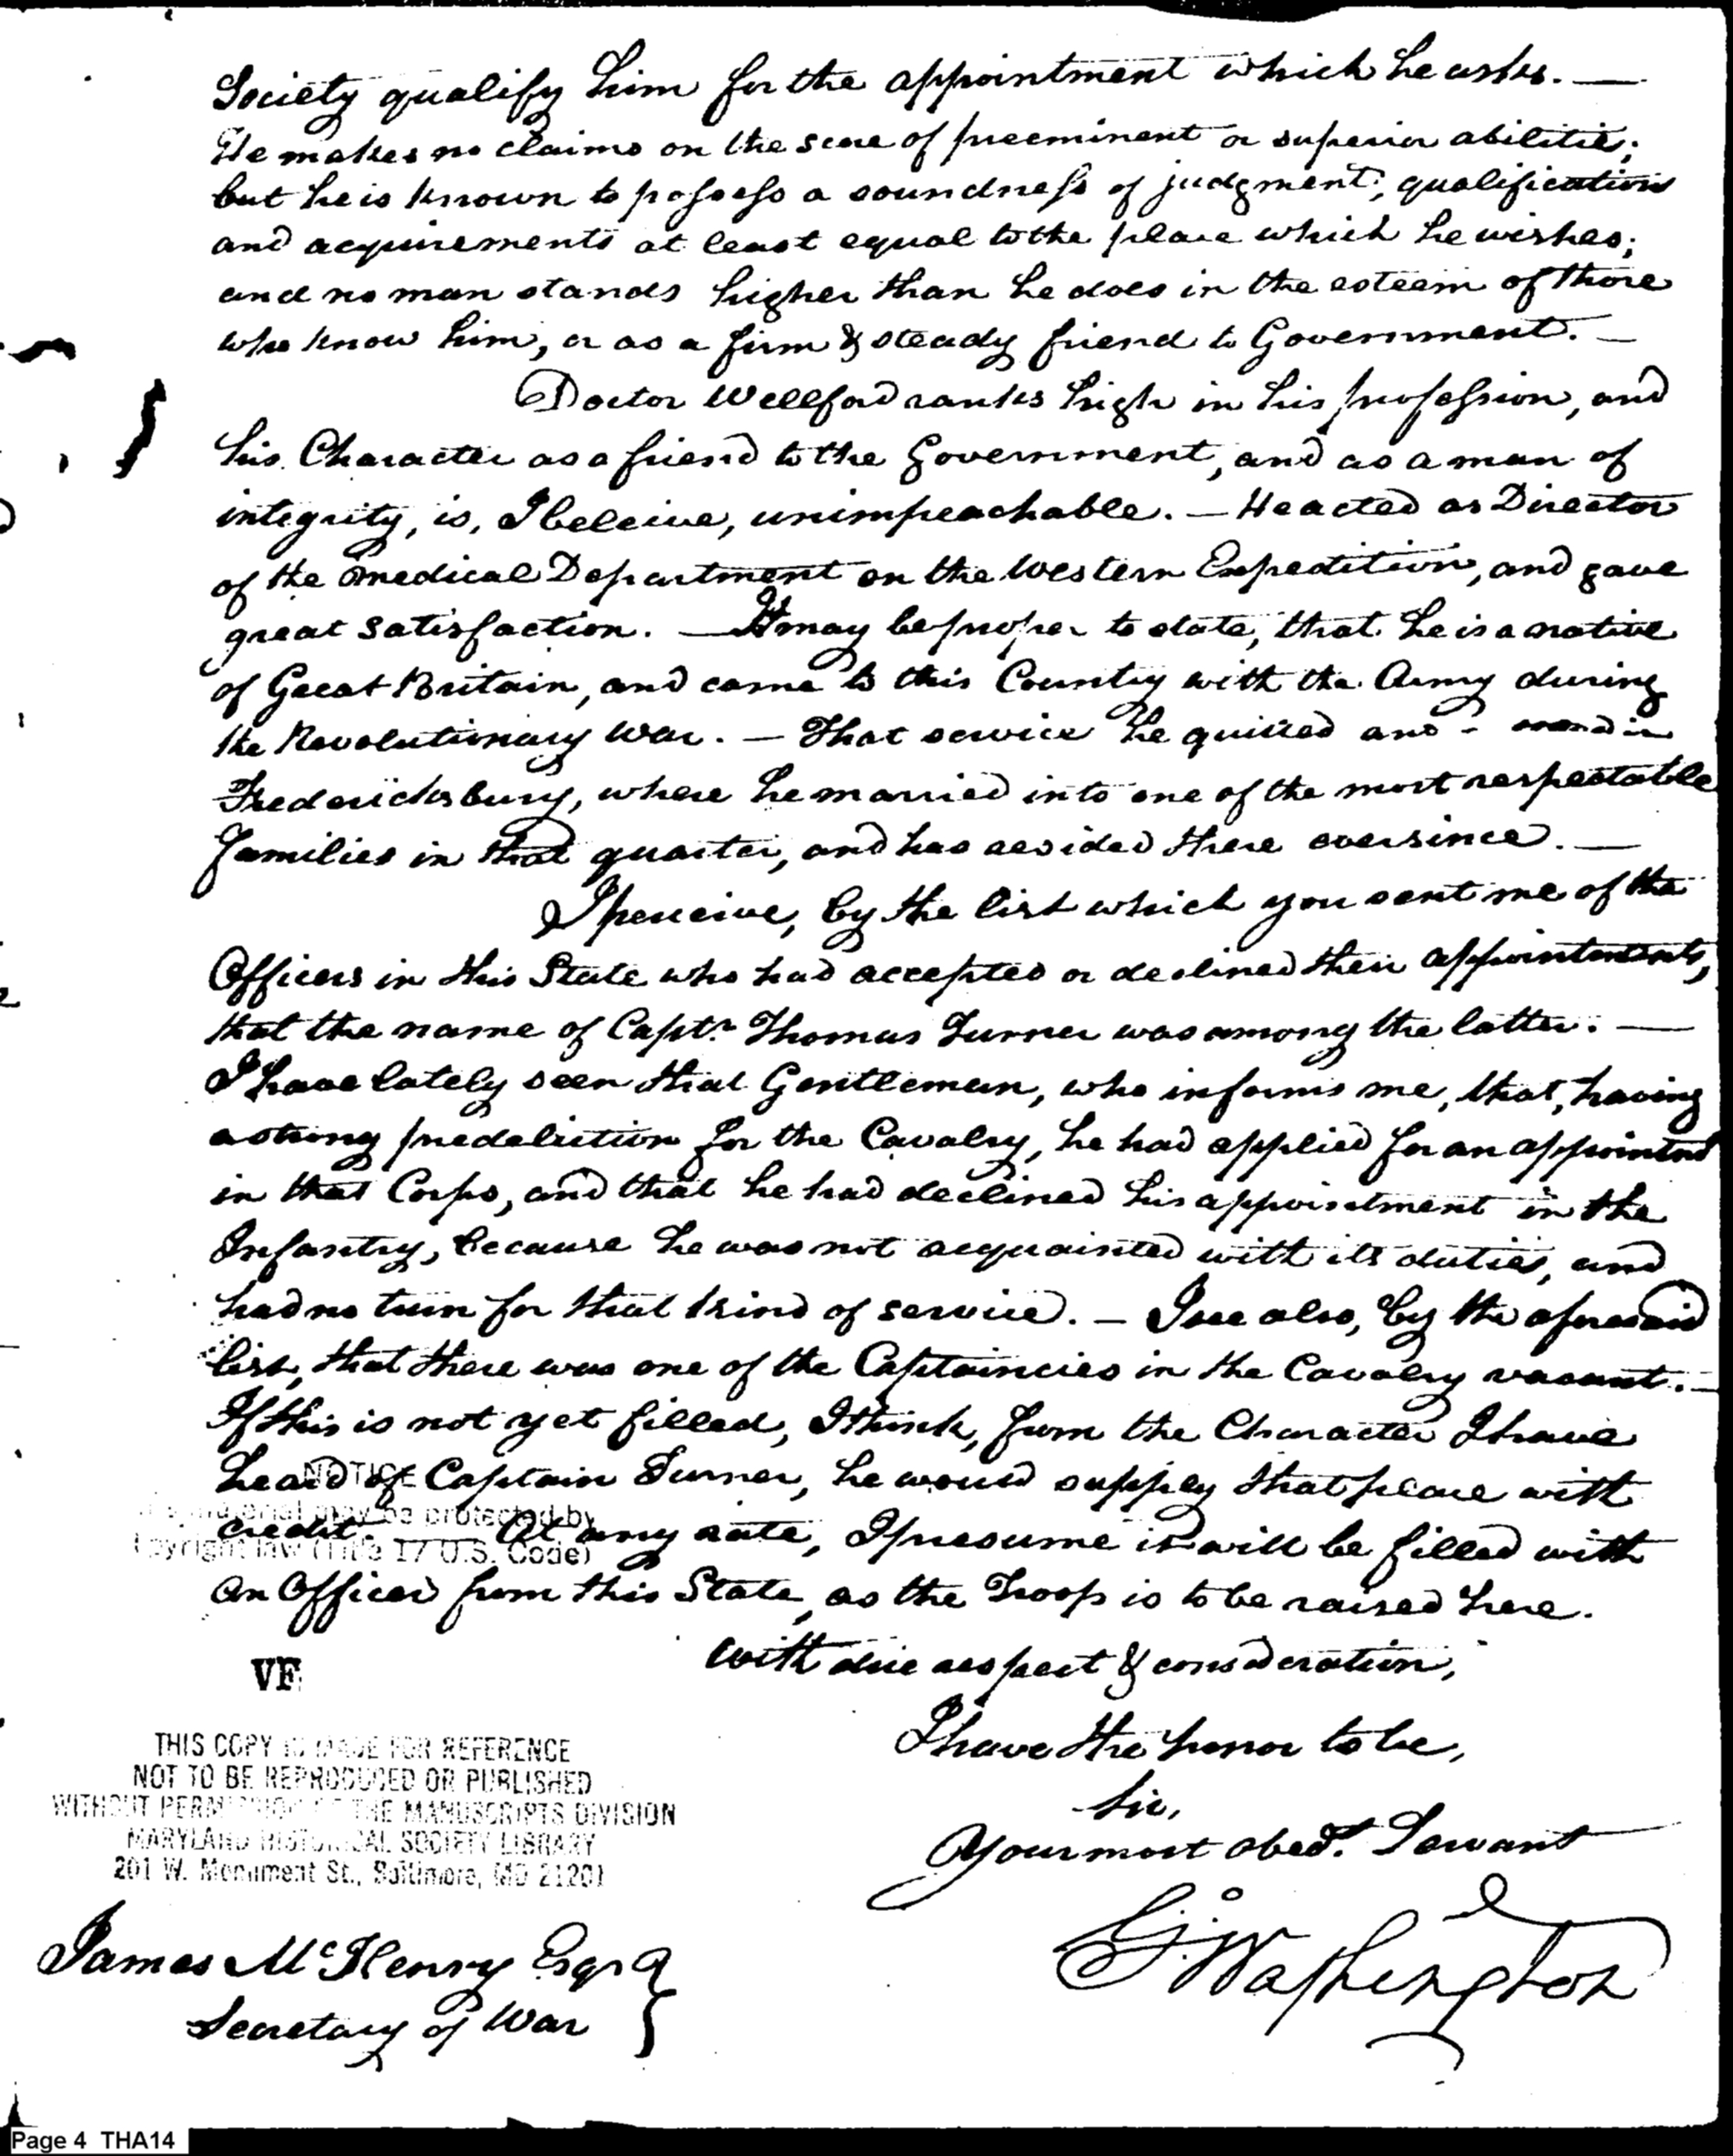 Society qualify him for the appointment which he asks. —
He makes no claims on the score of preeminent or superior abilities;
but he is known to possess a soundness of judgment; qualifications
and acquirements at least equal to the place which he wishes;
and no man stands higher than he does in the esteem of those
who know him, or as a firm & steady friend to Government. —
Doctor Wellford ranks high in his profession, and
his Character as a friend to the Government, and as a man of
integrity, is, I beleive, unimpeachable. — He acted as Director
of the medical Department on the Western Expedition, and gave
great satisfaction. — It may be proper to state, that he is a native
of Great Britain, and came to this Country with the Army during
the Revolutionary War. — That service he quitted and in
Fredericksburg, where he married into one of the most respectable
families in that quarter, and has resided there eversince. —
I perceive, by the list which you sent me of the
Officers in this State who had accepted or declined their appointments,
that the name of Captn. Thomas Turner was among the latter. —
I have lately seen that Gentleman, who informs me, that, having
a strong predeliction for the Cavalry, he had applied for an appointmt
in that Corps, and that he had declined his appointment in the
Infantry, because he was not acquainted with its duties, and
had no turn for that kind of service. — I see also, by the aforesaid
list, that there was one of the Captaincies in the Cavalry vacant. —
If this is not yet filled, I think, from the Character I have
heard of Captain Turner, he would supply that place with
NOTICE
may be protected by
credit. — At any rate, I presume it will be filled with
Copyright law (Title 17 U.S. Code)
an Officer from this State, as the Troop is to be raised here.
With due respect & consideration,
I have the honor to be,
Sir,
Your most obedt. Servant
Go: Washington
VF
THIS COPY IS MADE FOR REFERENCE
NOT TO BE REPRODUCED OR PUBLISHED
WITHOUT PERMISSION OF THE MANUSCRIPTS DIVISION
MARYLAND HISTORICAL SOCIETY LIBRARY
201 W. Monument St., Baltimore, MD 21201
James McHenry Esqr
Secretary of War
Page 4 THA14